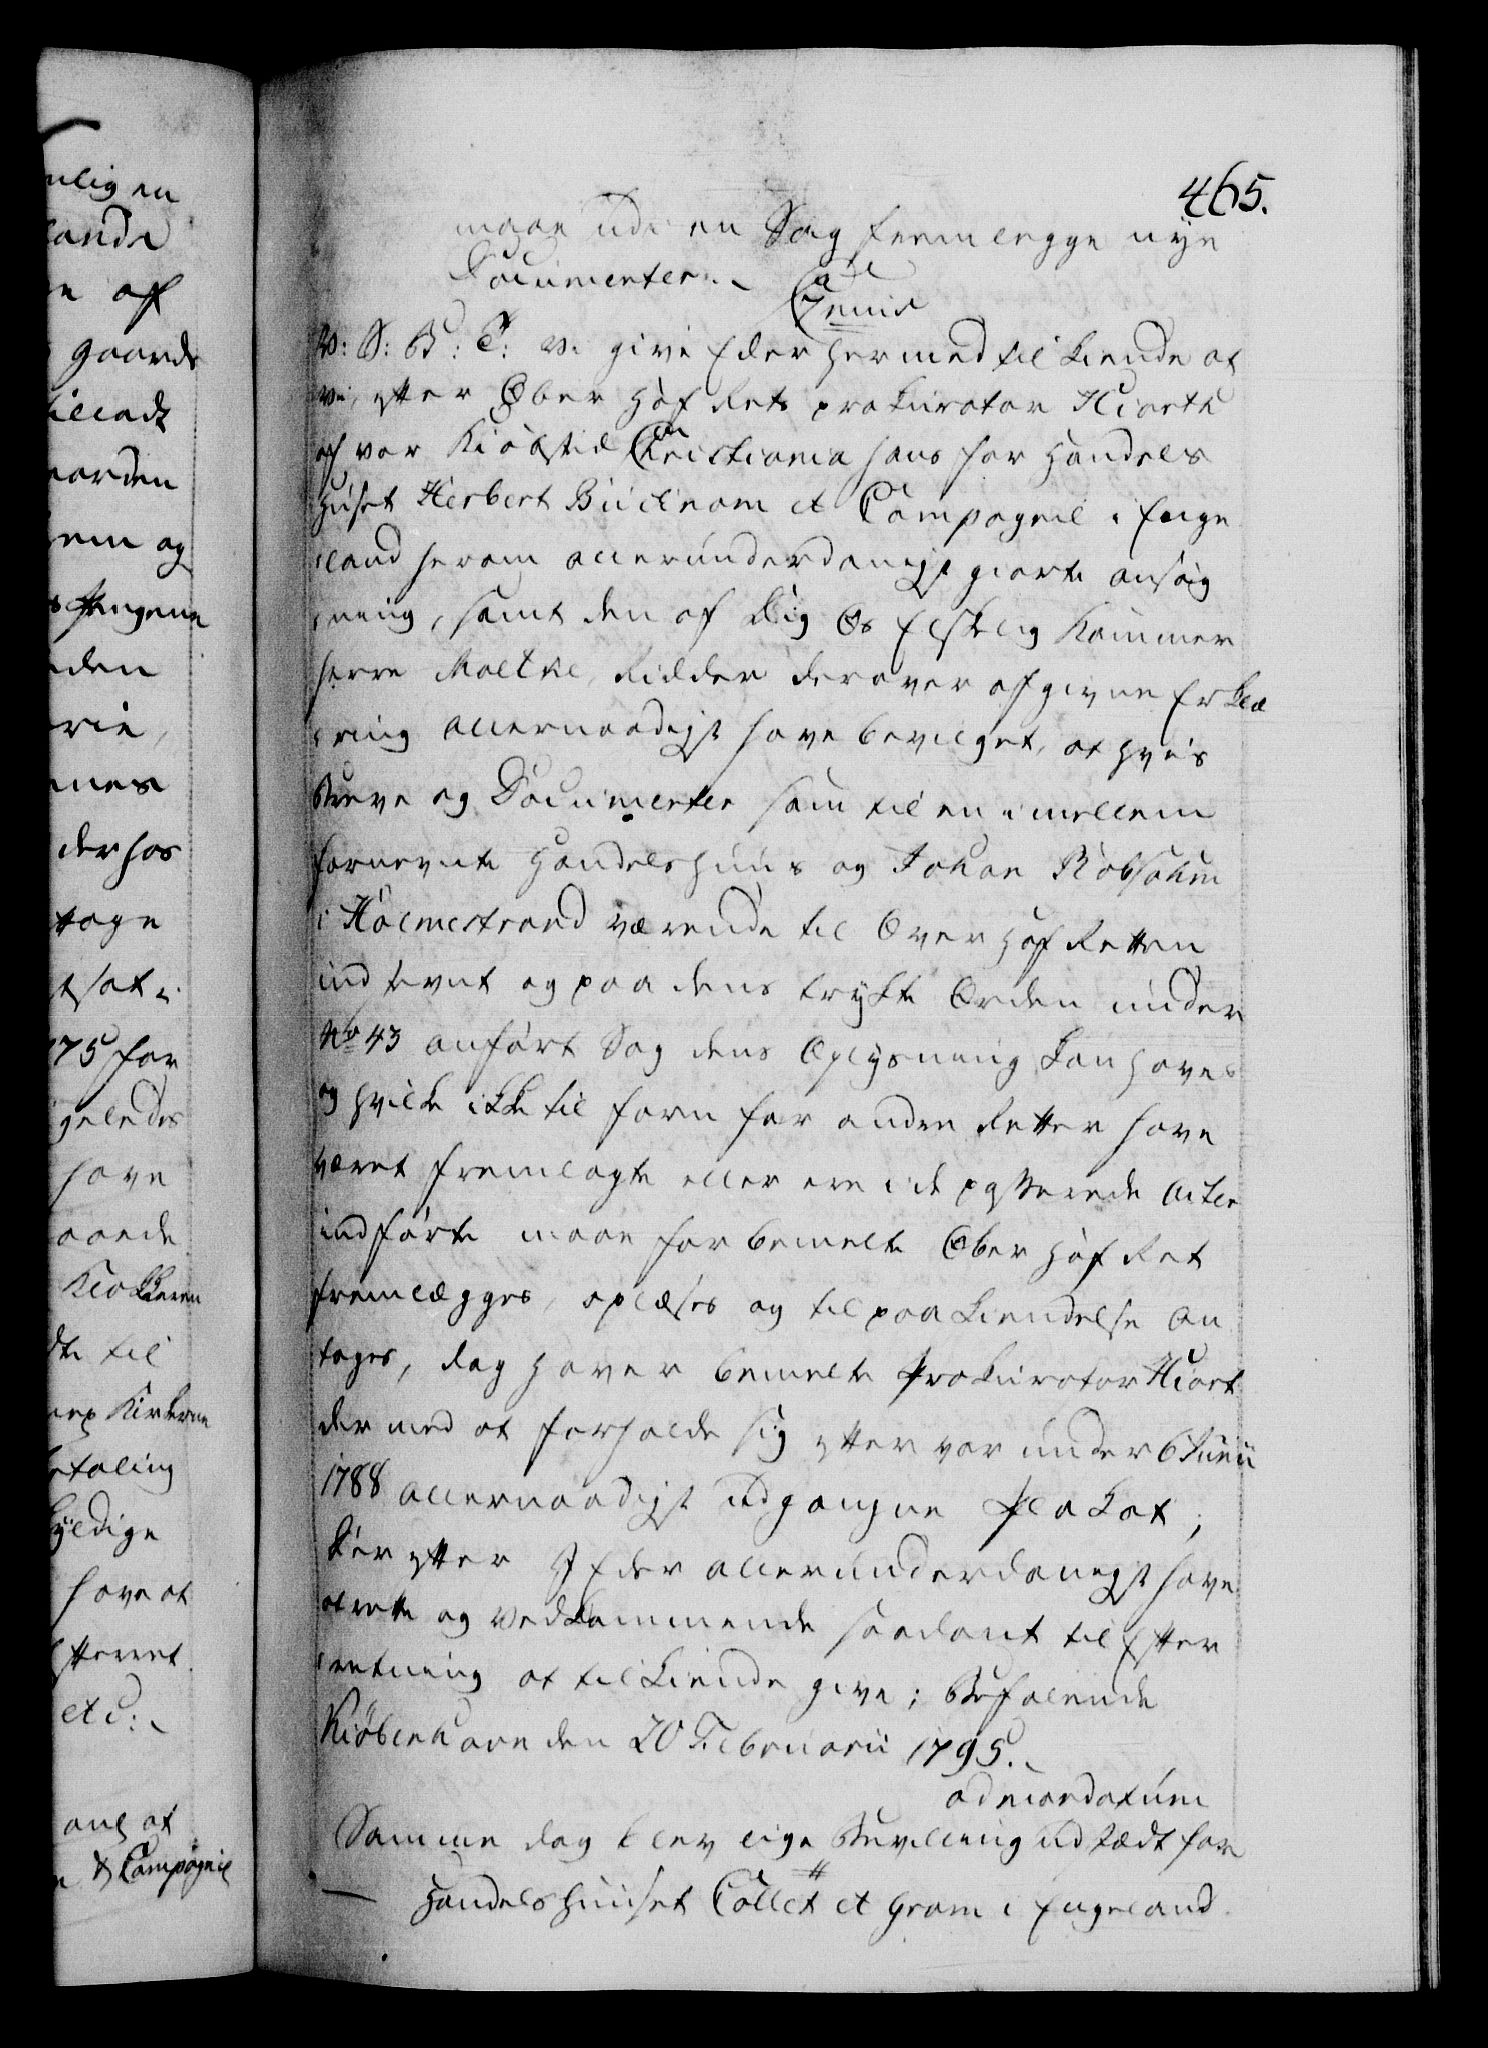 465.
maae udi en Sag fremlegge nye
Documenter.
C 7
V: S: G: T: Vi give Eder hermed til kiende at
vi, efter Ober Hof Rets prokurator Hiorth
af vor Kiøbsted Christiania hans for Handels
Huset Herbert Bucknam et Compagnie i Enge
land herom allerunderdanigst giorte ansøg
ning, samt den af Dig Os Elskelig Kammer
herre Moltke, Ridder derover afgivne Erklæ
ring allernaadigst have bevilget, at hvis
Breve og Documenter som til en imellem
fornevnte Handelshuus og Johan Robsahm
i Holmestrand værende til Over Hof Retten
indstevnt og paa dens trykte Orden under
No 43 anført Sag dens Oplysning kan haves
og hvilke ikke til forn for andre Retter have
været fremlagte eller ere i de passerede Acter
indførte maae for bemelte Ober Hof Ret
fremlægges, oplæses og til paakiendelse an
tages, dog haver bemelte Prokurator Hiort
dermed at forholde sig efter vor under 6 Junii
1788 allernaadigst udgangne Plakat;
Der efter I Eder allerunderdanigst have
at rette og vedkommende saadant til Efter
retning at tilkiende give; Befalende
Kiøbenhavn den 20 Februarii 1795.
ad mandatum
Samme dag blev lige Bevilling udstædt for
Handelshuuset Collet et Gram i Engeland.
nlig en
lande
e af
gaards
illadt
aarden
em og
Pengene
den
rie,
nes
derhos
ttage
sat i
75 for
geledes
have
aande
Klokkeren
dte til
nex Kirkerne
etaling
kyldige
have at
etc:
ang at
& Compagnie